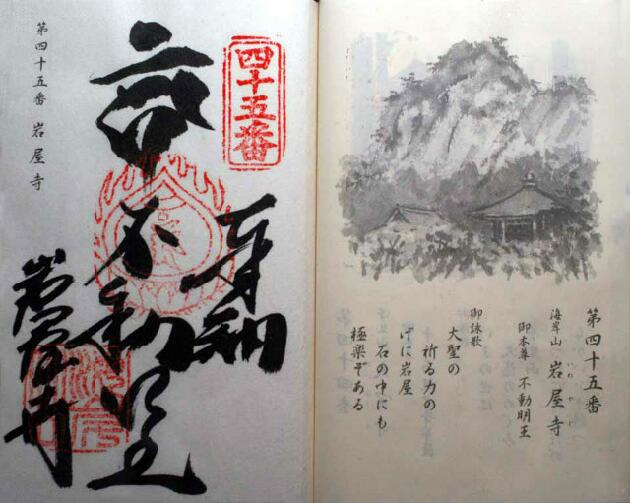 第四十五番
海岸山 岩屋寺
いわやじ
御本尊 不動明王
御詠歌
大聖の
祈る力の
げに岩屋
石の中にも
極楽ぞある
四十五番
奉納
不動明王
岩屋寺
第四十五番 岩屋寺